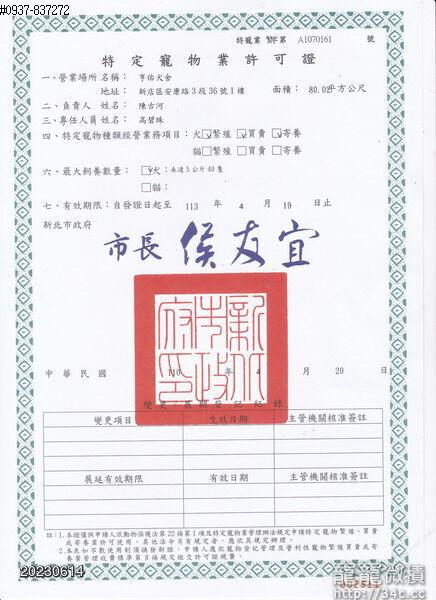 #0937-837272
特寵業 繁字第 A1070161 號
特定寵物業許可證
一、營業場所名稱： 亨佑犬舍
地址： 新店區安康路3段36號1樓 面積： 80.02平方公尺
二、負責人 姓名： 陳古河
三、專任人員 姓名： 高碧珠
四、特定寵物種類經營業務項目：犬☑繁殖☑買賣☑寄養
貓□繁殖□買賣□寄養
六、最大飼養數量：☑犬：未達5公斤40隻
□貓：
七、有效期限：自發證日起至 113 年 4 月 19 日止
新北市政府
市長 侯友宜
新北市政府印
中華民國 110 年 4 月 20 日
變更/展期登記紀錄
變更項目 生效日期 主管機關核准簽註
展延有效期限 有效日期 主管機關核准簽註
註：1.本證僅與申請人依動物保護法第22條第1項及特定寵物業管理辦法規定申請特定寵物繁殖、買賣
或寄養業許可使用，其他法令另有規定者，應依其規定辦理。
2.本表如不敷使用則須換發新證，申請人應依寵物登記管理及營利性寵物繁殖買賣或寄
養業管理收費標準第8條規定繳交許可證規費。
20230614
002511
龍龍微積
http://34c.cc